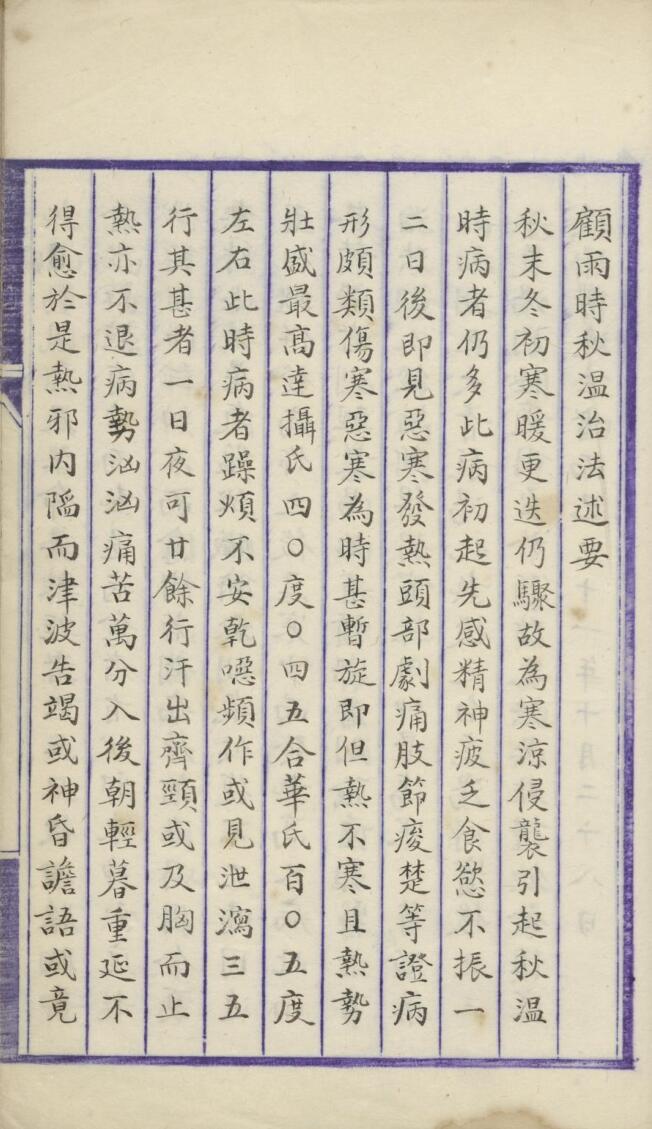 顧雨時秋溫治法述要
秋末冬初寒暖更迭仍驟故為寒涼侵襲引起秋溫
時病者仍多此病初起先感精神疲乏食慾不振一
二日後即見惡寒發熱頭部劇痛肢節痠楚等證病
形頗類傷寒惡寒為時甚暫旋即但熱不寒且熱勢
壯盛最高達攝氏四〇度〇四五合華氏百〇五度
左右此時病者躁煩不安乾噁頻作或見泄瀉三五
行其甚者一日夜可廿餘行汗出齊頸或及胸而止
熱亦不退病勢汹汹痛苦萬分入後朝輕暮重延不
得愈於是熱邪內陷而津波告竭或神昏譫語或竟